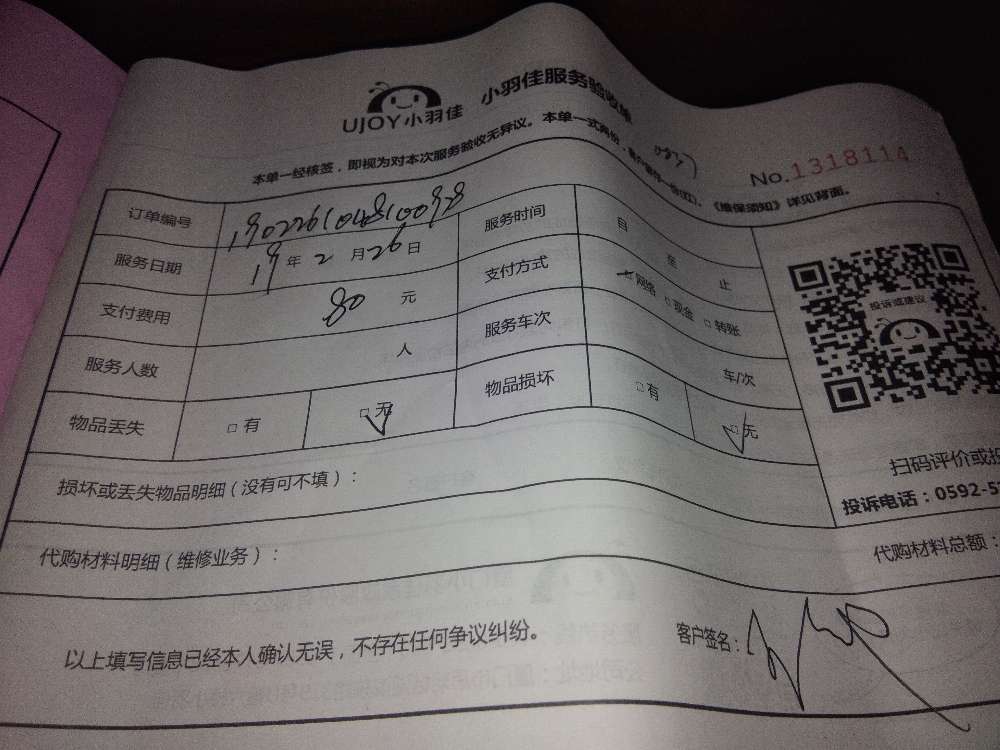 UJOY小羽佳 小羽佳服务验收单
No.1318114
本单一经核签，即视为对本次服务验收无异议。本单一式两份，客户留存一份(红)。《维保须知》详见背面。
订单编号
服务时间 自 至 止
服务日期 19 年 2 月 26 日
支付方式 网络 □ 现金 □ 转账
支付费用 80 元
服务车次 车/次
服务人数 人
物品丢失 □ 有 □ 无
物品损坏 □ 有 □ 无
投诉或建议
扫码评价或投
投诉电话：0592-5
损坏或丢失物品明细（没有可不填）：
代购材料明细（维修业务）：
代购材料总额：
以上填写信息已经本人确认无误，不存在任何争议纠纷。
客户签名：